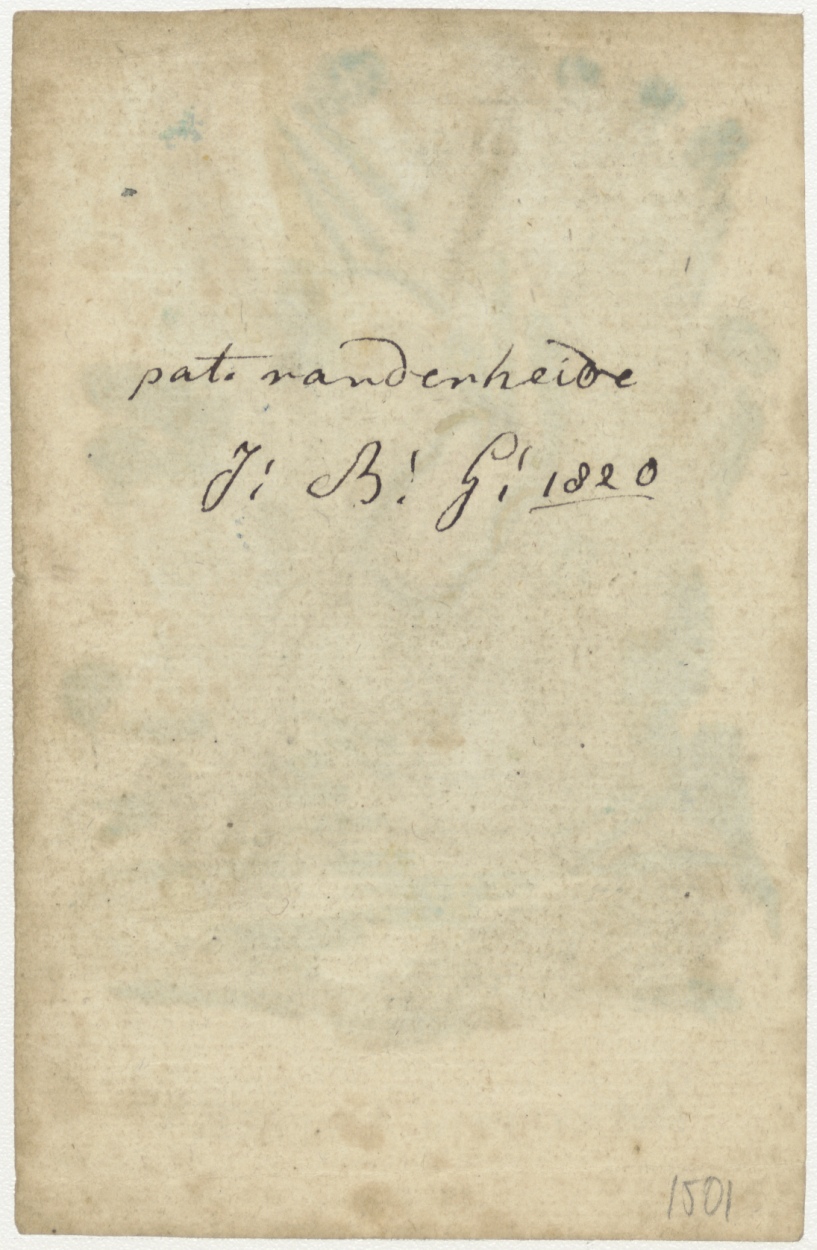 pat. vandenheide
J: B: G: 1820
1501